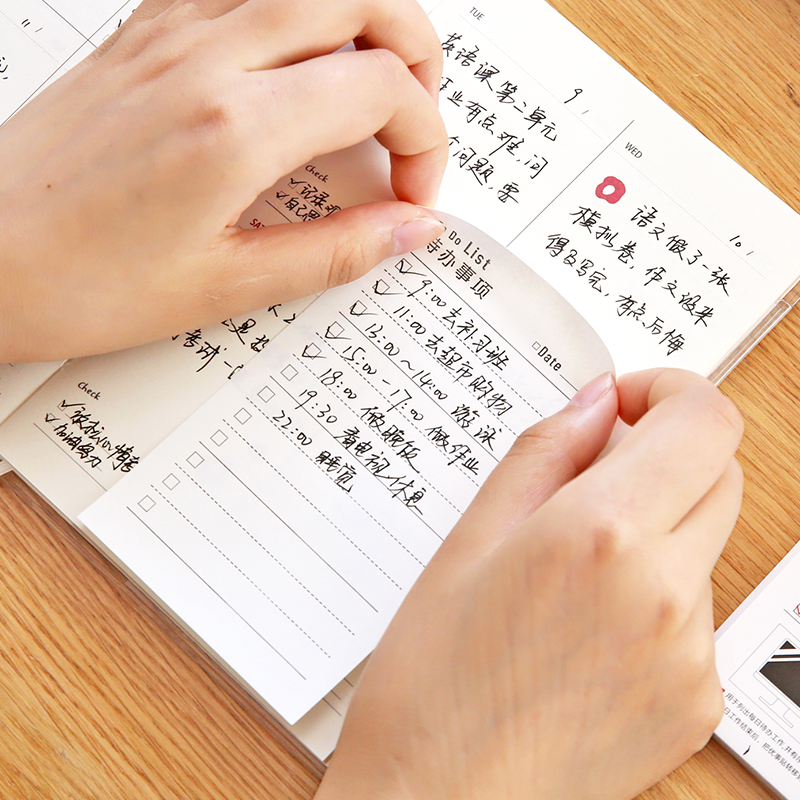 TUE
9 /
英语课第二单元
作业有点难，问
个问题，要
WED
10 /
语文做了一张
模拟卷，作文没来
得及写完，有点后悔
Check
SAT
Do List
待办事项
Date
9:00 去补习班
11:00 去超市购物
13:00～14:00 游泳
15:00-17:00 做作业
18:00 做晚饭
19:30 看电视休息
22:00 睡觉
Check
放松心情
用于列出每日待办工作，并有序
日工作结束后，把优事贴转移